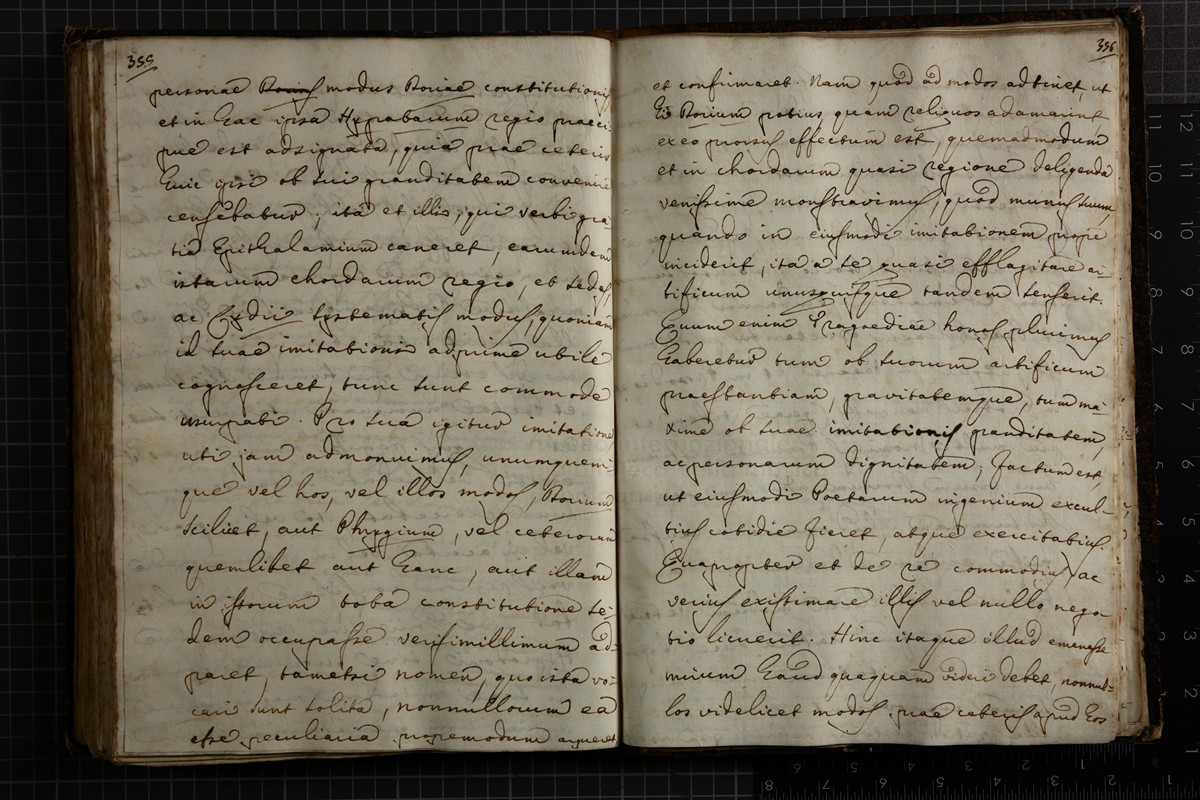 355
personae modus Doriae constitutionis
et in hac ipsa Hypatarum regio praeci
pue est adsignata, quia prae ceteris
huic ipsi ob sui granditatem convenire
censebatur; ita et illis, qui verbi gra
tia Epithalamium caneret, earumdem
istarum chordarum regio, et sedes,
ac Lydii systematis modus, quoniam
id suae imitationis adprime utile
cognosceret, tunc sunt commode
usurpati. Pro sua igitur imitatione
uti jam admonuimus, unumquem
que vel hos, vel illos modos, Dorium
scilicet, aut Phrygium, vel ceterorum
quemlibet aut hanc, aut illam
in istorum tota constitutione se-
dem occupasse verisimillimum ad-
paret, tametsi nomen, quo ista vo-
cari sunt solita, nonnullorum ea
esse peculiaria propemodum argueret
356
et confirmaret. Nam quod ad modos adtinet, ut
hi Dorium potius quam reliquos adamarint
ex eo prorsus effectum est, quemadmodum
et in chordarum quasi regione deligenda
venissime monstravimus, quod munus suum
quando in eiusmodi imitationem prope
inciderit, ita a se quasi efflagitare ar-
tificum unusquisque tandem senserit.
Quum enim Tragoediae honos plurimus
haberetur tum ob suorum artificum
praestantiam, gravitatemque, tum ma-
xime ob suae imitationis granditatem,
ac personarum dignitatem; factum est,
ut eiusmodi Poetarum ingenium excul-
tius cotidie fieret, atque exercitatius.
Quapropter et de re commodius, ac
verius existimare illis vel nullo nego-
tio licuerit. Hinc itaque illud emanasse
mirum haud quaquam videri debet, nonnul-
los videlicet modos prae ceteris apud hos